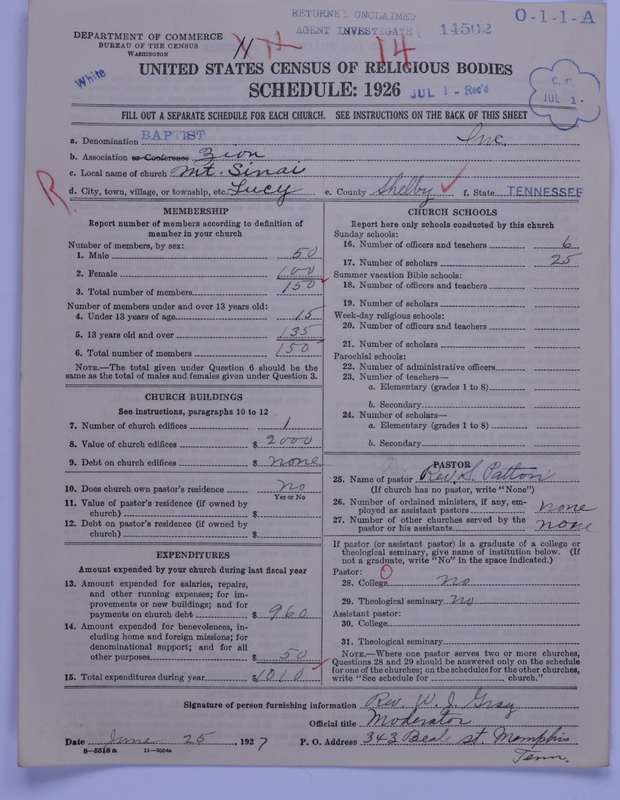 RETURNED UNCLAIMED
AGENT INVESTIGATE
14502
O-1-1-A
DEPARTMENT OF COMMERCE
BUREAU OF THE CENSUS
WASHINGTON
14
White
UNITED STATES CENSUS OF RELIGIOUS BODIES
SCHEDULE: 1926
JUL 1 - Rec'd
JUL 1 -
FILL OUT A SEPARATE SCHEDULE FOR EACH CHURCH. SEE INSTRUCTIONS ON THE BACK OF THIS SHEET
a. Denomination BAPTIST Inc.
b. Association or Conference Zion
c. Local name of church Mt. Sinai
R
d. City, town, village, or township, etc. Lucy e. County Shelby f. State TENNESSEE
MEMBERSHIP
Report number of members according to definition of member in your church
Number of members, by sex:
1. Male 50
2. Female 100
3. Total number of members 150
Number of members under and over 13 years old:
4. Under 13 years of age 15
5. 13 years old and over 135
6. Total number of members 150
NOTE.—The total given under Question 6 should be the same as the total of males and females given under Question 3.
CHURCH BUILDINGS
See instructions, paragraphs 10 to 12
7. Number of church edifices 1
8. Value of church edifices $ 2000
9. Debt on church edifices $ none
10. Does church own pastor's residence no
Yes or No
11. Value of pastor's residence (if owned by church) $
12. Debt on pastor's residence (if owned by church) $
EXPENDITURES
Amount expended by your church during last fiscal year
13. Amount expended for salaries, repairs, and other running expenses; for improvements or new buildings; and for payments on church debt $ 960
14. Amount expended for benevolences, including home and foreign missions; for denominational support; and for all other purposes $ 50
15. Total expenditures during year $ 1010
CHURCH SCHOOLS
Report here only schools conducted by this church
Sunday schools:
16. Number of officers and teachers 6
17. Number of scholars 25
Summer vacation Bible schools:
18. Number of officers and teachers
19. Number of scholars
Week-day religious schools:
20. Number of officers and teachers
21. Number of scholars
Parochial schools:
22. Number of administrative officers
23. Number of teachers—
a. Elementary (grades 1 to 8)
b. Secondary
24. Number of scholars—
a. Elementary (grades 1 to 8)
b. Secondary
PASTOR
25. Name of pastor Rev. S. Patton
(If church has no pastor, write "None")
26. Number of ordained ministers, if any, employed as assistant pastors none
27. Number of other churches served by the pastor or his assistants none
If pastor (or assistant pastor) is a graduate of a college or theological seminary, give name of institution below. (If not a graduate, write "No" in the space indicated.)
Pastor:
28. College no
29. Theological seminary no
Assistant pastor:
30. College
31. Theological seminary
NOTE.—Where one pastor serves two or more churches, Questions 28 and 29 should be answered only on the schedule for one of the churches; on the schedules for the other churches, write "See schedule for church."
Signature of person furnishing information Rev. W. J. Gray
Official title Moderator
Date June 25, 1927 P. O. Address 343 Beale st. Memphis
Tenn.
8-5518a 11-9054a